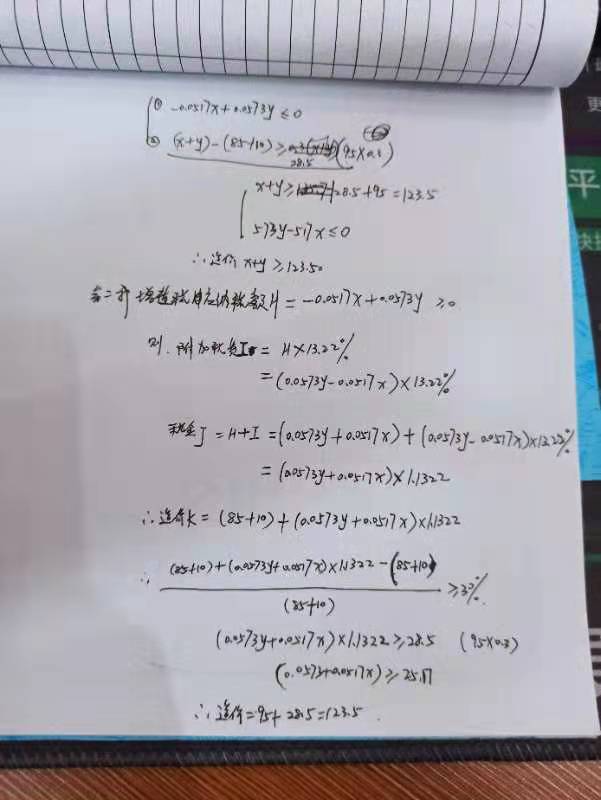 ① -0.0517x+0.0573y≤0
② (x+y)-(85+10)≥ (95×0.3)
28.5
x+y≥ 28.5+95=123.5
573y-517x≤0
∴造价 x+y≥123.50
增值税 H=-0.0517x+0.0573y ≥0
则.附加税 I = H×13.22%
=(0.0573y-0.0517x)×13.22%
税金J=H+I=(0.0573y+0.0517x)+(0.0573y-0.0517x)×13.22%
=(0.0573y+0.0517x)×1.1322
∴造价K=(85+10)+(0.0573y+0.0517x)×1.1322
∴ (85+10)+(0.0573y+0.0517x)×1.1322-(85+10)
≥30%
(85+10)
(0.0573y+0.0517x)×1.1322≥28.5 (95×0.3)
(0.0573+0.0517x)≥25.17
∴造价=95+28.5=123.5.
更
平